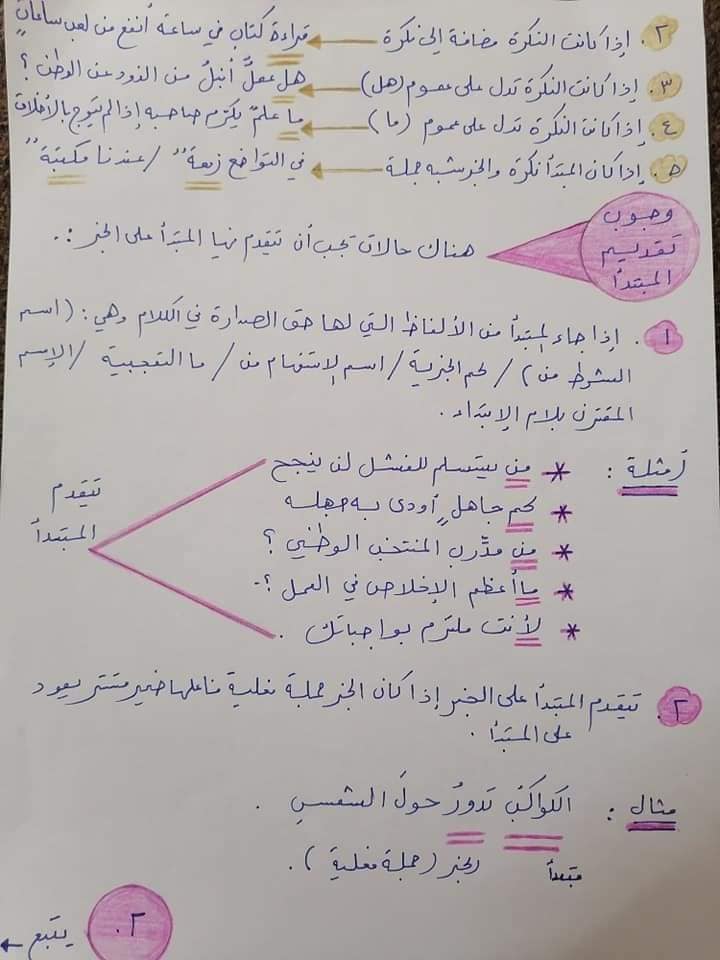 ٢. إذا كانت النكرة مضافة إلى نكرة ← قراءة كتاب في ساعة أنفع من لعب ساعات
٣. إذا كانت النكرة تدل على عموم (هل) ← هل عملٌ أنبلُ من الذود عن الوطن ؟
٤. إذا كانت النكرة تدل على عموم (ما) ← ما علمٌ يكرم صاحبه إذا لم يتوج بالأخلاق
٥. إذا كان المبتدأ نكرة والخبر شبه جملة ← في التواضع رفعة" / عندنا مكتبة"
وجوب تقديم المبتدأ
هناك حالات تجب أن تتقدم فيها المبتدأ على الخبر :.
١. إذا جاء المبتدأ من الألفاظ التي لها حق الصدارة في الكلام وهي : (اسم
الشرط من) / كم الخبرية / اسم الاستفهام من / ما التعجبية / الإسم
المقترن بلام الإبتداء .
أمثلة :
* من يستسلم للفشل لن ينجح
* كم جاهلٍ أودى به جهله
* من مدَّرب المنتخب الوطني ؟
* ما أعظم الإخلاص في العمل ؟
* لأنت ملتزم بواجباتك .
تيقدم المبتدأ
٢. تيقدم المبتدأ على الخبر إذا كان الخبر جملة فعلية فاعلها ضمير مستتر يعود
على المبتدأ .
مثال : الكواكبُ تدورُ حولَ الشمسِ .
مبتدأ الخبر (جملة فعلية) .
٢.
يتبع ←